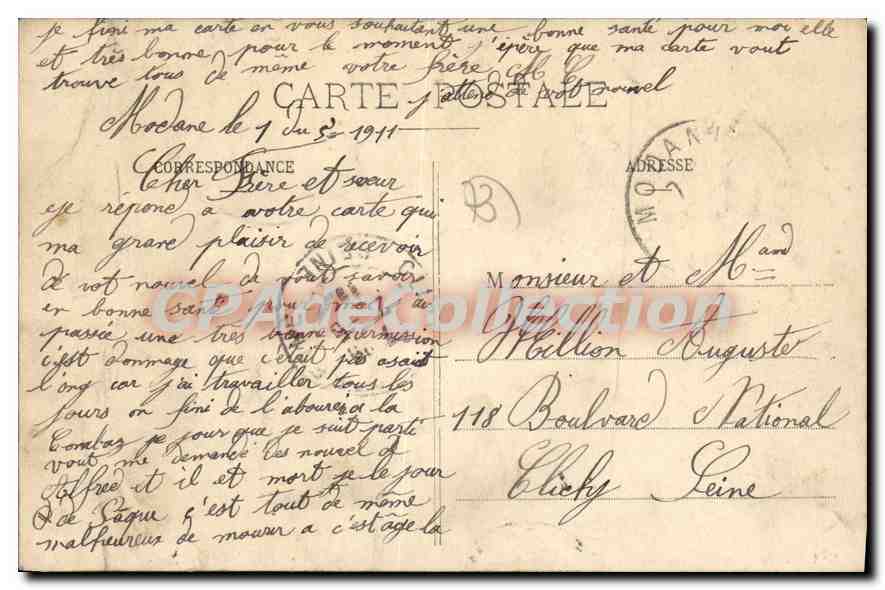 je fini ma carte en vous souhaitant une bonne santé pour moi elle
et très bonne pour le moment j'épère que ma carte vout
trouve tous de même votre frère
CARTE POSTALE
j'attend de vot nouvel
Modane le 1 du 5 1911
CORRESPONDANCE
Cher Frère et sœur
je répond a votre carte qui
ma grand plaisir de recevoir
de vot nouvel de vout savoir
en bonne santé pour moi j'ai
passée une très bonne permission
c'est dommage que c'était pas asait
long car j'ai travailler tous les
jours on fini de l'abourer a la
Combaz je jour que je suit parti
vout me demandé des nouvel d
Alfred et il et mort je le jour
de Pâque s'est tout de même
malheureux de mourir a c'est âge la
ADRESSE
MODANE
Monsieur et Mand
Million Auguste
118 Boulvard National
Clichy Seine
CPA de Collection